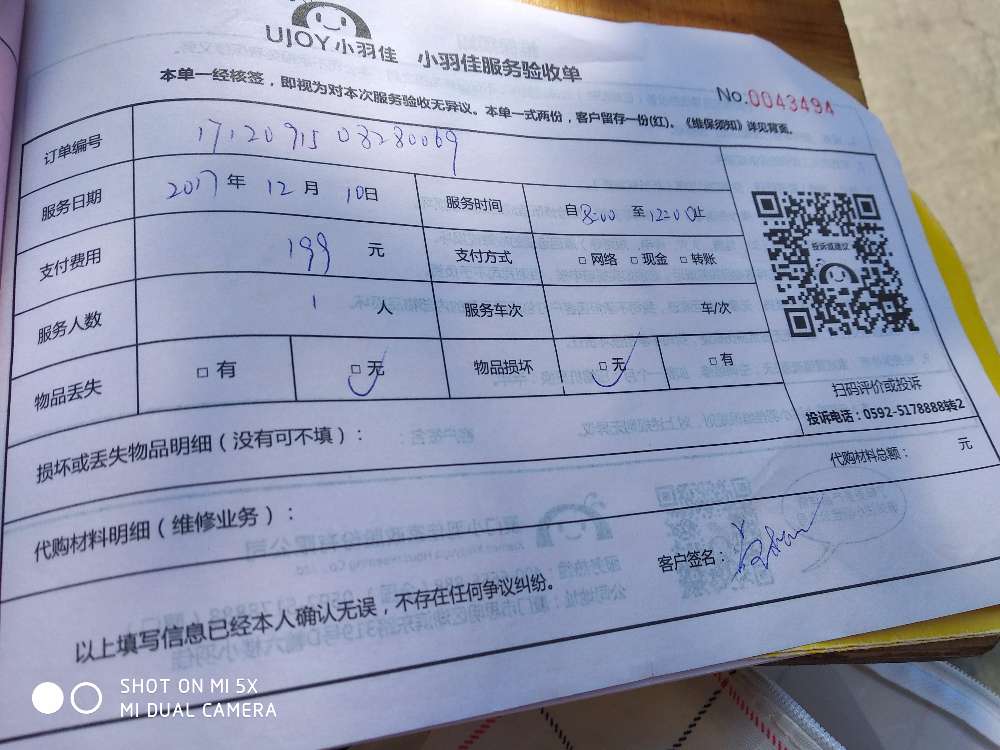 UJOY小羽佳 小羽佳服务验收单
No.0043494
本单一经核签，即视为对本次服务验收无异议。本单一式两份，客户留存一份(红)。《维保须知》详见背面。
订单编号 17120915 08280069
服务日期 2017年 12月 10日 服务时间 自8:00至12:00止
支付费用 199 元 支付方式 □网络 □现金 □转账
服务人数 1 人 服务车次 车/次
物品丢失 □有 □无 物品损坏 □无 □有
投诉或建议
扫码评价或投诉
投诉电话：0592-5178888转2
损坏或丢失物品明细（没有可不填）：
代购材料明细（维修业务）： 代购材料总额： 元
客户签名：
以上填写信息已经本人确认无误，不存在任何争议纠纷。
SHOT ON MI 5X
MI DUAL CAMERA